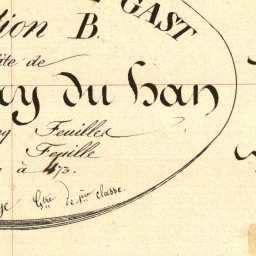 GAST
tion B.
ite de
ay du han
Feuilles
Feuille
à 473.
Gtre de 1ère classe.